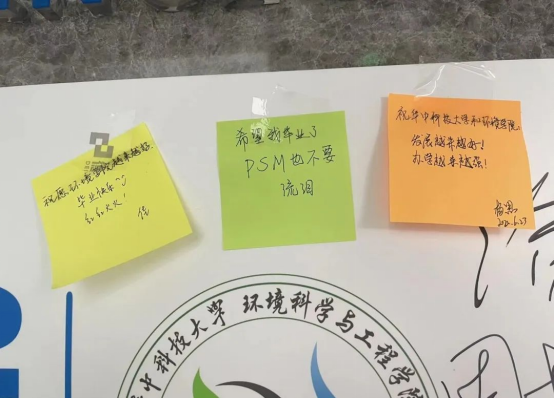 祝愿环境学院越来越强
毕业快乐~
红红火火!
佳
希望我毕业了
PSM也不要
流泪
祝华中科技大学和环境学院,
发展越来越好!
办学越来越强!
6.27
中科技大学 环境科学与工程学院